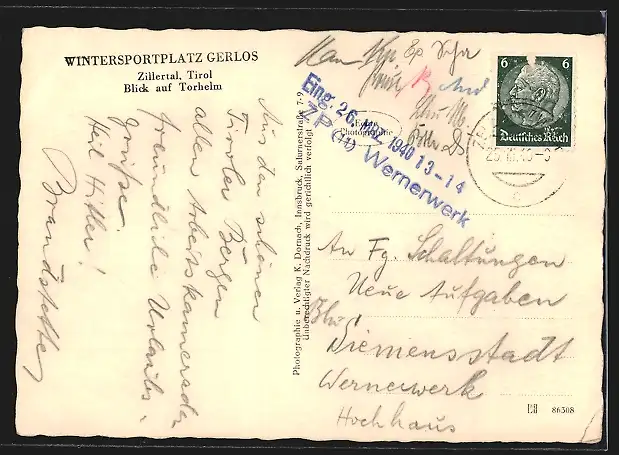 WINTERSPORTPLATZ GERLOS
Zillertal, Tirol
Blick auf Torhelm
Aus den schönen
Tiroler Bergen
allen Arbeitskameraden
freundliche Urlaubs-
grüsse.
Heil Hitler!
Brandstetter
Photographie u. Verlag K. Dornach, Innsbruck, Salurnerstraße 7-9
Unberechtigter Nachdruck wird gerichtlich verfolgt
Echte
Photographie
Eing. 26. 1940 13-14
ZP (11) Wernerwerk
6 6
Deutsches Reich
An Fg. Schaltungen
Neue Aufgaben
Bln
Siemensstadt
Wernerwerk
Hochhaus
86308